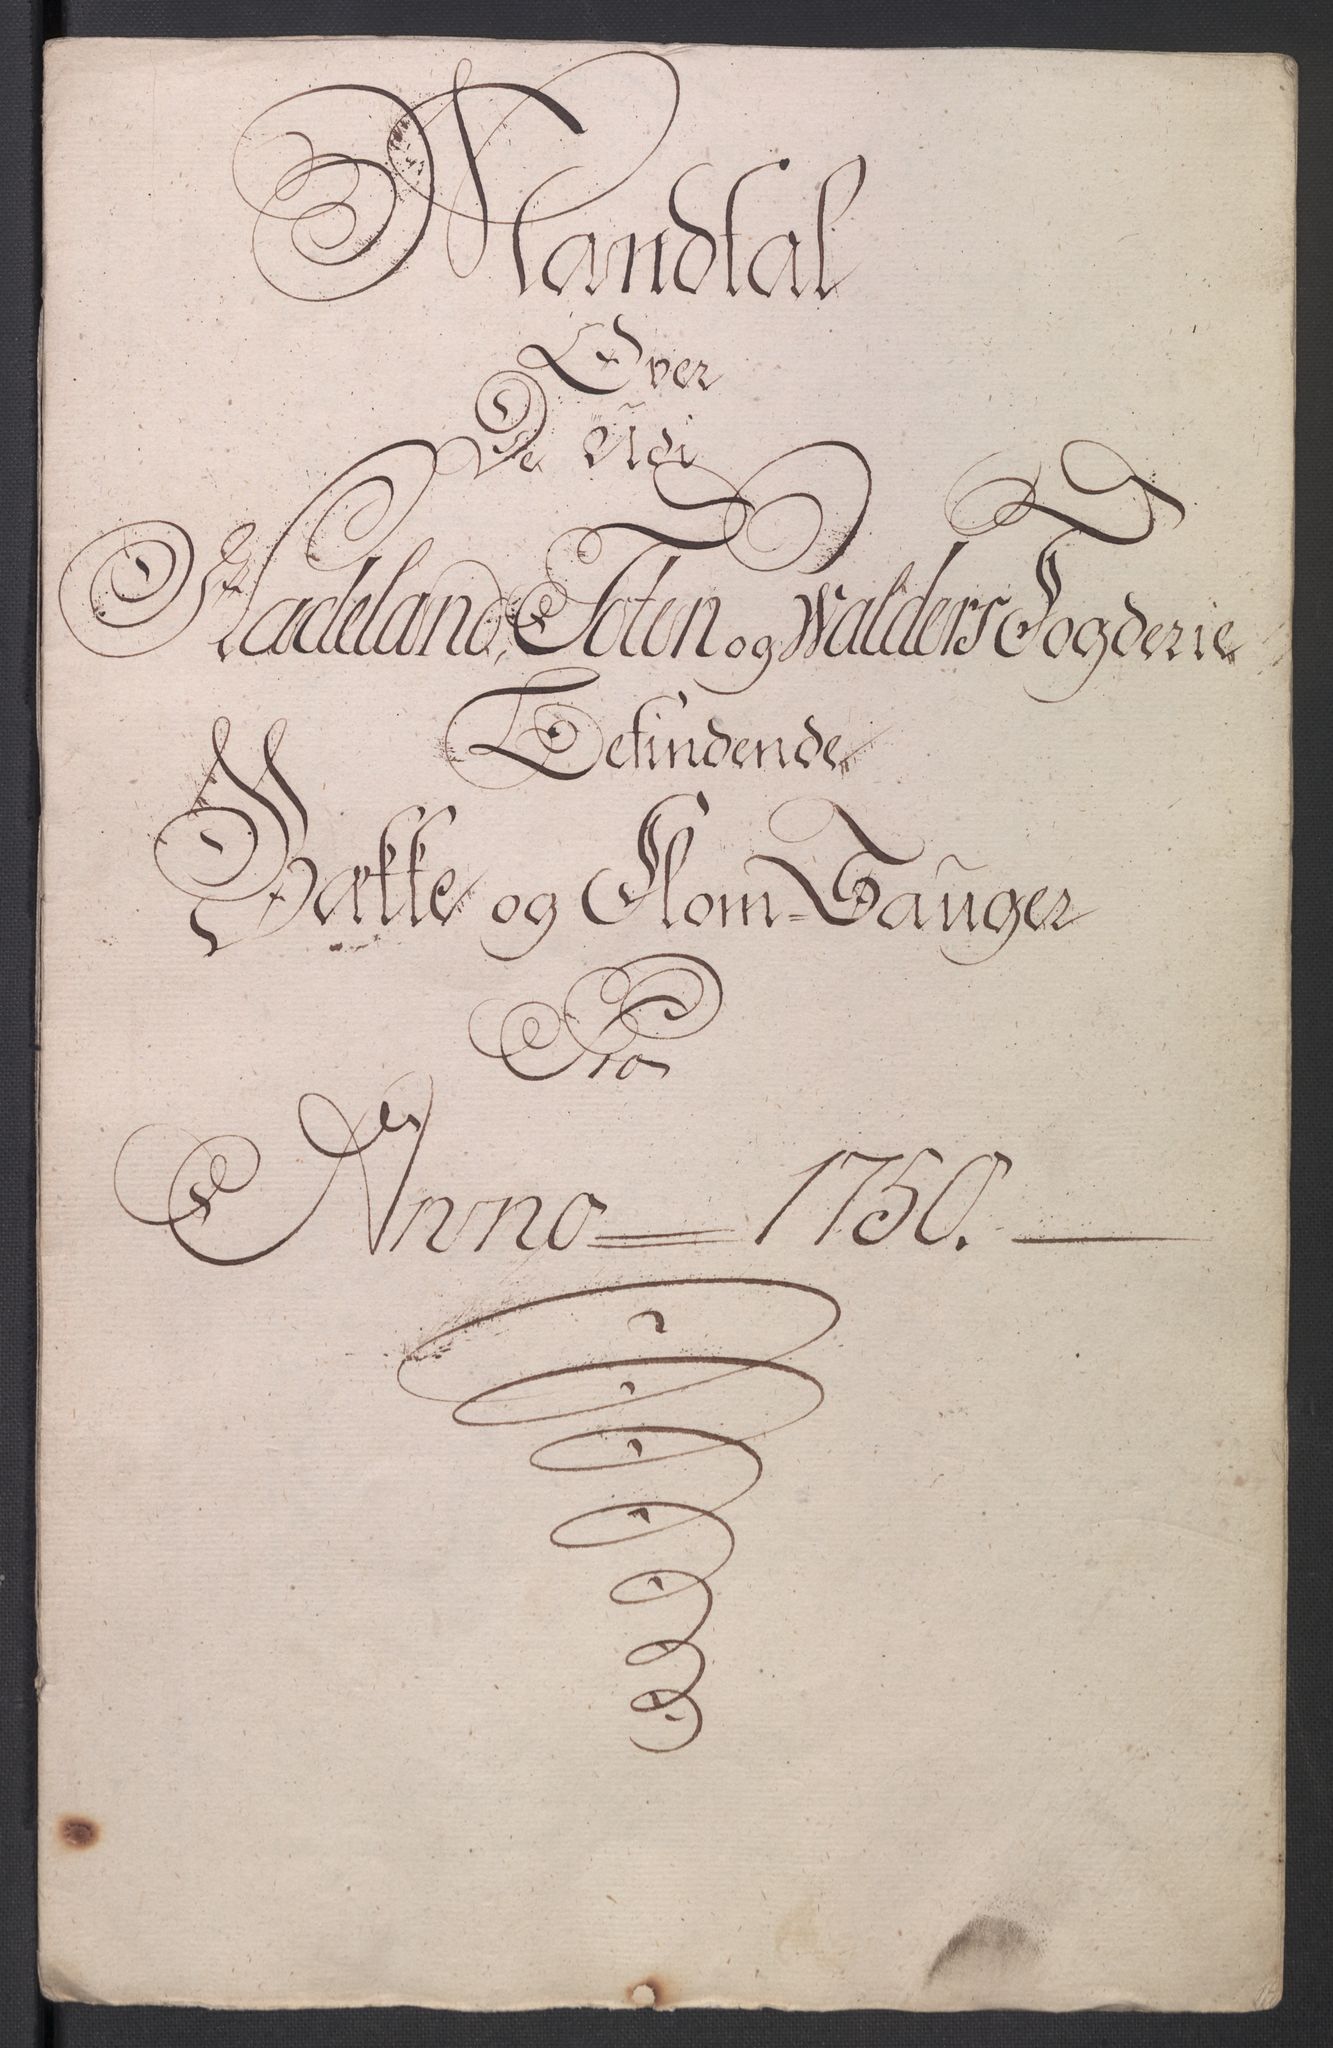 Mandtal
Over
De udi
Hadeland, Toten og Walders Fogderie
Befindende
Bække og Flom-Sauger
Pro
Anno 1750.